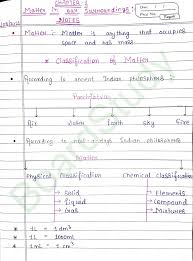 CHAPTER-1
Matter in our Surroundings:
NOTES
• Matter : Matter is anything that occupies
space and has mass
* Classification of Matter
• According to ancient Indian philosphers
Panchtatva
Air Water Earth Sky Fire
• According to modern days Indian philosphers
Matter
Physical Classification Chemical Classification
→ Solid → Elements
→ Liquid → Compound
→ Gas → Mixtures
* 1L = 1dm³
* 1L = 1000ml
* 1mL = 1cm³
BeardStudy